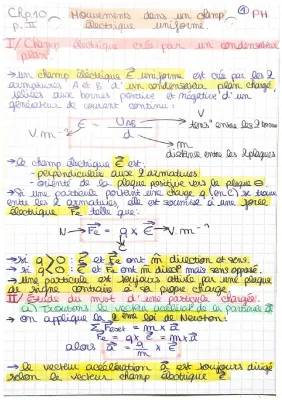 Chp.10 Mouvements dans un champ ① PH
p. II électrique uniforme.
I/ Champ électrique créé par un condensateur
plan
→ un champ électrique E⃗ uniforme est créé par les 2
armatures A et B d'un condensateur plan chargé
reliées aux bornes positive et négative d'un
générateur de courant continu :
V.m⁻¹ E = UAB / d
V
tens° entre les 2 bornes
m
distance entre les 2 plaques
→ le champ électrique E⃗ est :
- perpendiculaire aux 2 armatures
- orienté de la plaque positive vers la plaque ⊖
→ Si une particule portant une charge q (en C) se trouve
entre les 2 armatures, elle est soumise à une force
électrique F⃗e telle que :
N → F⃗e = q × E⃗ → V.m⁻¹
C
→ si q > 0 : E⃗ et F⃗e ont m̂ direction et sens.
→ si q < 0 : E⃗ et F⃗e ont m̂ direct° mais sens opposé.
→ Une particule est toujours attirée par une plaque
de signe contraire à sa propre charge.
II/ Étude du mvt d'une particule chargée.
a) Trouvons le vecteur accélérat° de la particule a⃗
→ On applique la 2ème loi de Newton :
ΣF⃗ext = m × a⃗
F⃗e = q × E⃗ = m × a⃗
alors a⃗ = q/m × E⃗
→ le vecteur accélération a⃗ est toujours dirigé
selon le vecteur champ électrique E⃗